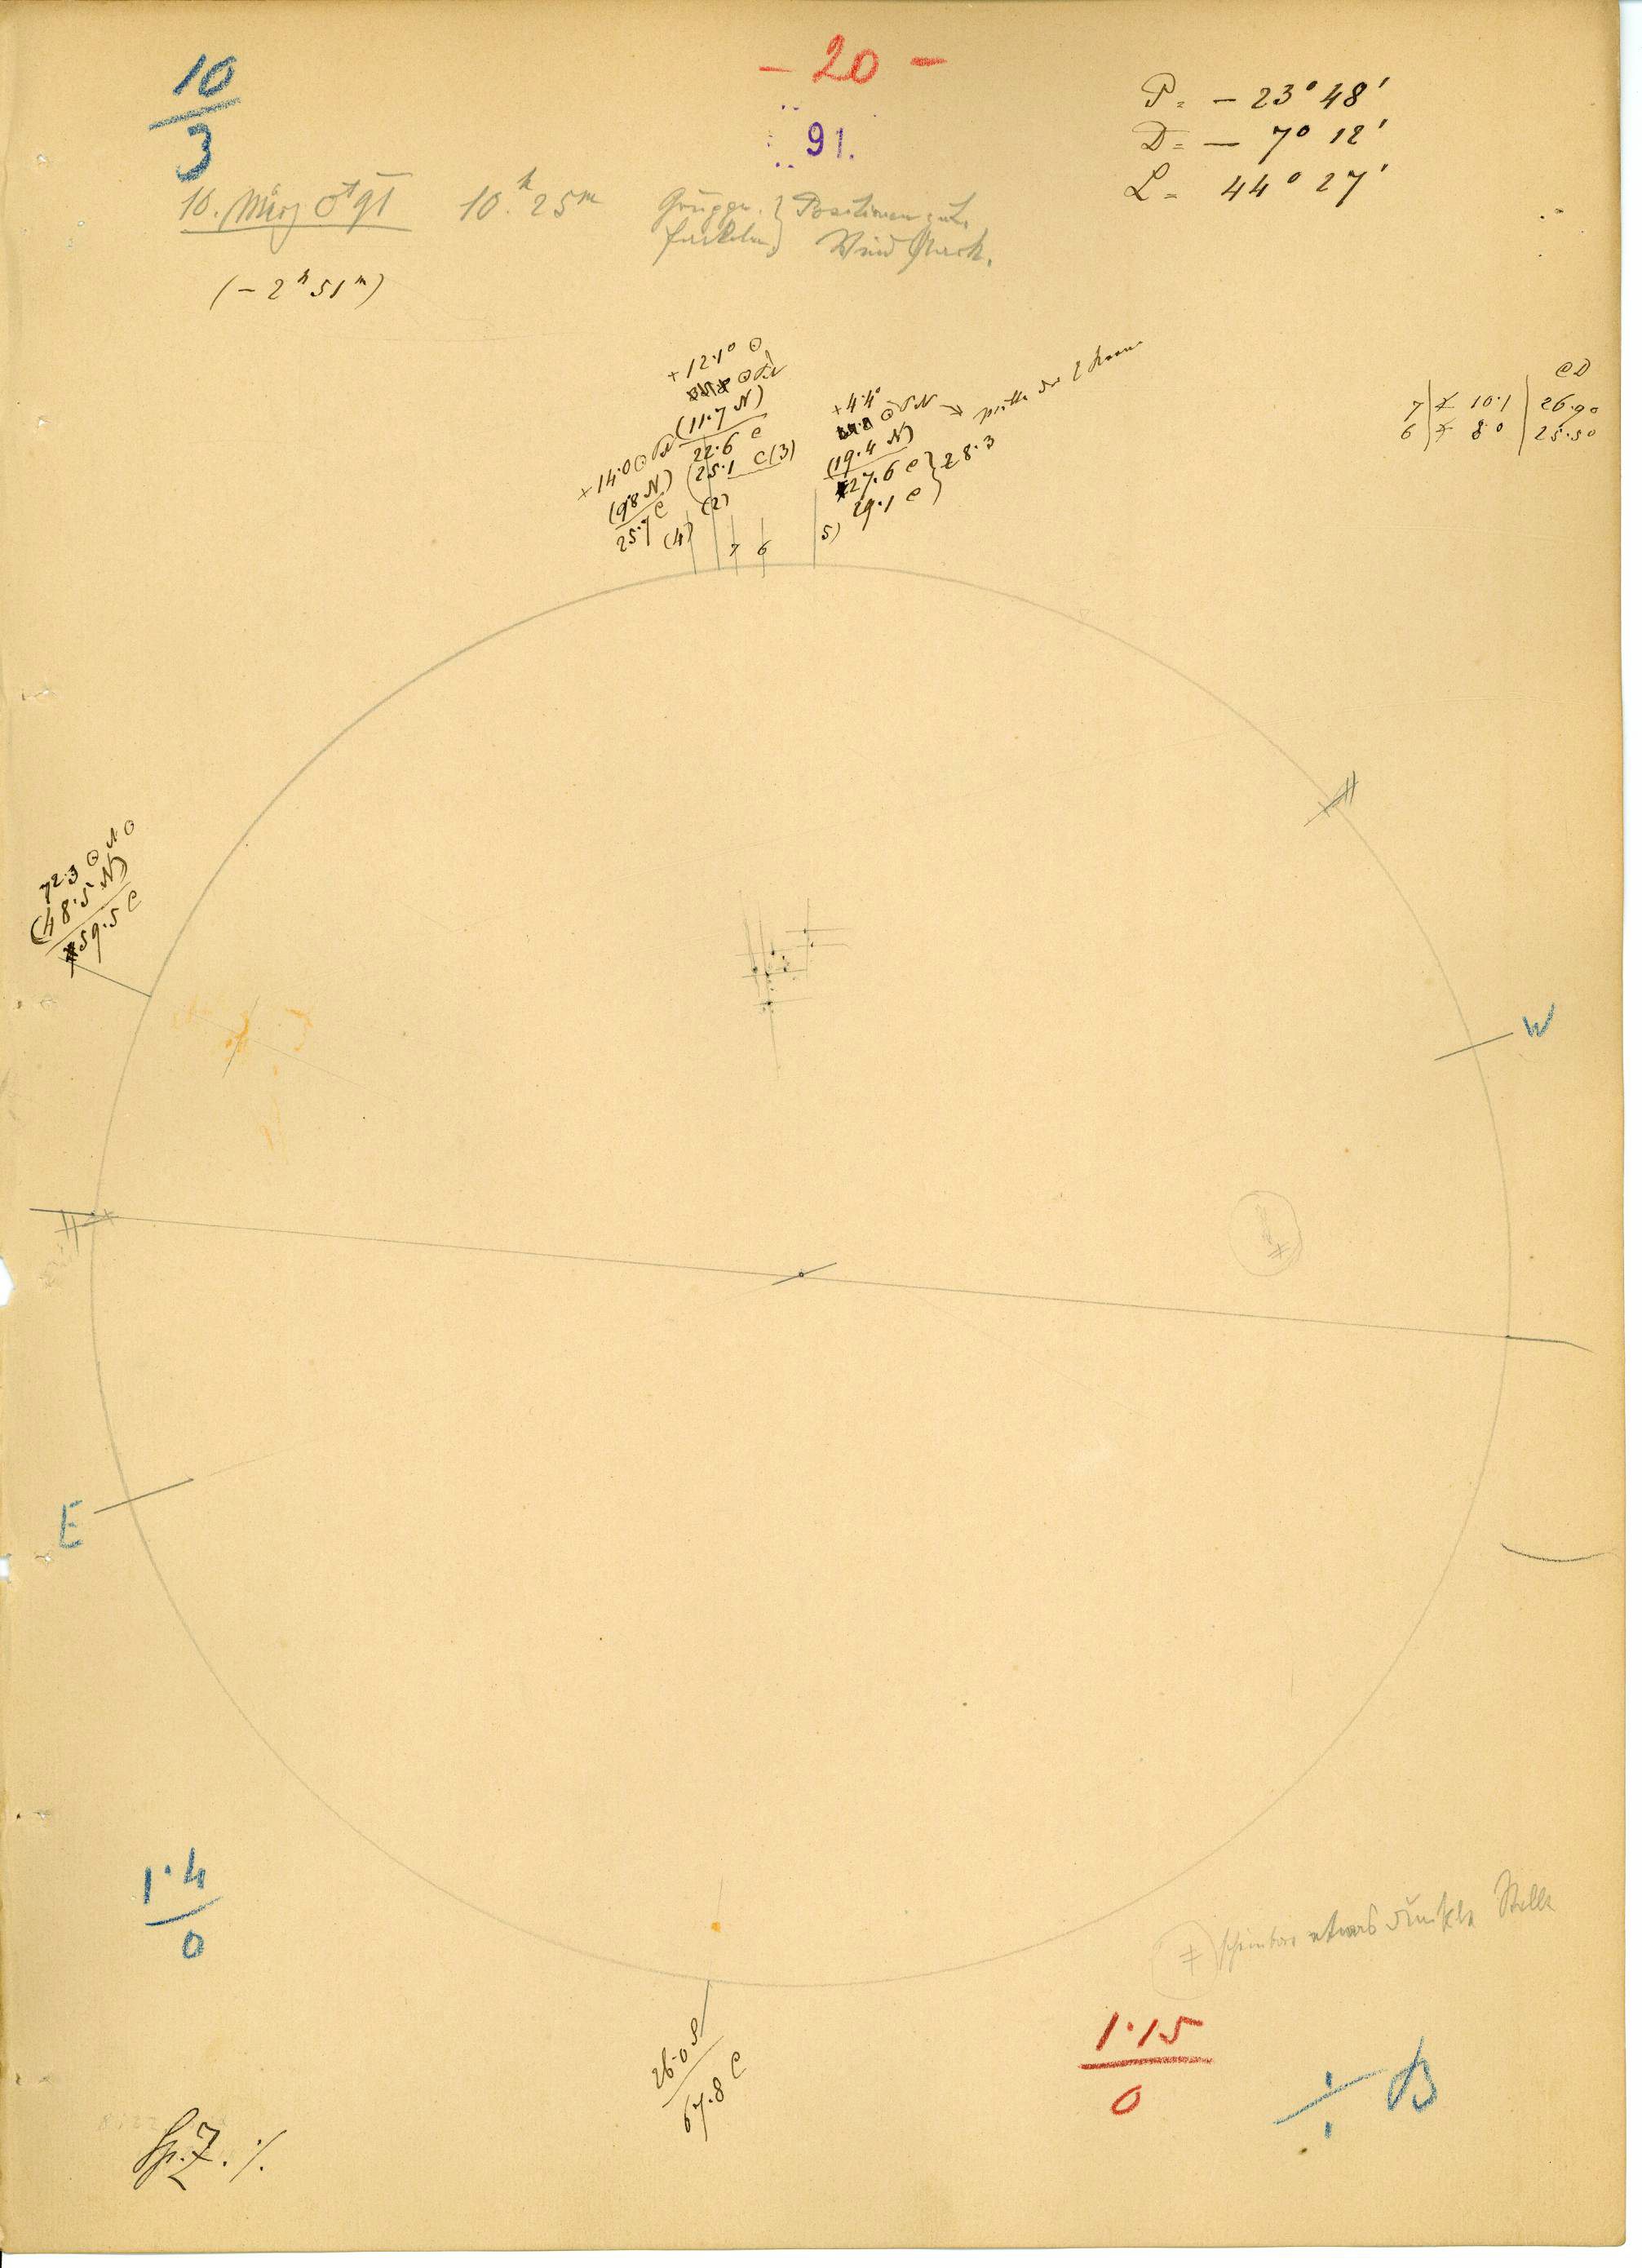 10
3
- 20 -
91.
P = - 23° 48'
D = - 7° 12'
L = 44° 27'
10. März ♂ 91 10.h 25m Gruppen } Positionen gut.
Fackeln } Wind stark.
(- 2h 51m)
+12.1° ⊙
(11.7 N)
22.6 e
(25.1 e (3)
(2)
+14.0 ⊙
(9.8 N)
25.7 e
(4)
7
6
+4.4°
(19.4 N)
27.6 e } 28.3
29.1 e
5)
eD
7) 10.1 26.90
6) 8.0 25.50
72.3 ⊙
(48.5 N)
59.5 e
W
E
1.4
0
≠ scheinbar etwas dunkle Stelle
26.0 S
67.8 e
1.15
0
÷ B
Sp. Z. ·/.